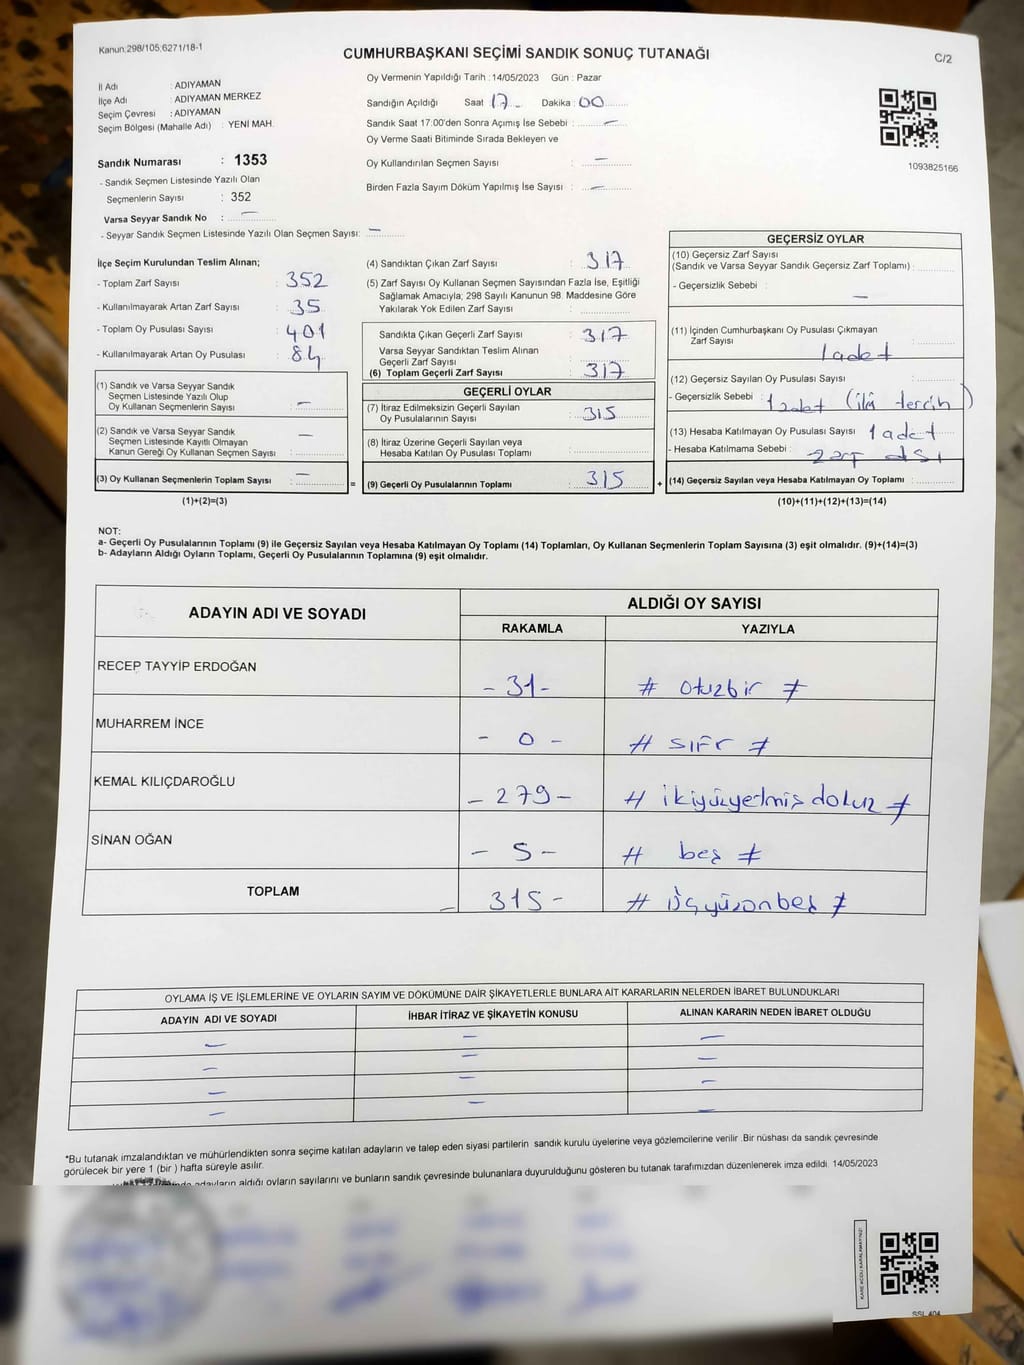 Kanun:298/105;6271/18-1
CUMHURBAŞKANI SEÇİMİ SANDIK SONUÇ TUTANAĞI
C/2
İl Adı : ADIYAMAN
İlçe Adı : ADIYAMAN MERKEZ
Seçim Çevresi : ADIYAMAN
Seçim Bölgesi (Mahalle Adı) : YENİ MAH.
Sandık Numarası : 1353
- Sandık Seçmen Listesinde Yazılı Olan
Seçmenlerin Sayısı : 352
Varsa Seyyar Sandık No : —
- Seyyar Sandık Seçmen Listesinde Yazılı Olan Seçmen Sayısı: —
Oy Vermenin Yapıldığı Tarih :14/05/2023 Gün : Pazar
Sandığın Açıldığı Saat 17 Dakika : 00
Sandık Saat 17:00'den Sonra Açımış İse Sebebi : —
Oy Verme Saati Bitiminde Sırada Bekleyen ve
Oy Kullandırılan Seçmen Sayısı : —
Birden Fazla Sayım Döküm Yapılmış İse Sayısı : —
1093825166
İlçe Seçim Kurulundan Teslim Alınan;
- Toplam Zarf Sayısı : 352
- Kullanılmayarak Artan Zarf Sayısı : 35
- Toplam Oy Pusulası Sayısı : 401
- Kullanılmayarak Artan Oy Pusulası : 84
(1) Sandık ve Varsa Seyyar Sandık
Seçmen Listesinde Yazılı Olup
Oy Kullanan Seçmenlerin Sayısı : —
(2) Sandık ve Varsa Seyyar Sandık
Seçmen Listesinde Kayıtlı Olmayan
Kanun Gereği Oy Kullanan Seçmen Sayısı : —
(3) Oy Kullanan Seçmenlerin Toplam Sayısı : — =
(1)+(2)=(3)
(4) Sandıktan Çıkan Zarf Sayısı : 317
(5) Zarf Sayısı Oy Kullanan Seçmen Sayısından Fazla İse, Eşitliği
Sağlamak Amacıyla; 298 Sayılı Kanunun 98. Maddesine Göre
Yakılarak Yok Edilen Zarf Sayısı :
Sandıkta Çıkan Geçerli Zarf Sayısı : 317
Varsa Seyyar Sandıktan Teslim Alınan
Geçerli Zarf Sayısı :
(6) Toplam Geçerli Zarf Sayısı : 317
GEÇERLİ OYLAR
(7) İtiraz Edilmeksizin Geçerli Sayılan
Oy Pusulalarının Sayısı : 315
(8) İtiraz Üzerine Geçerli Sayılan veya
Hesaba Katılan Oy Pusulası Toplamı :
(9) Geçerli Oy Pusulalarının Toplamı : 315 +
GEÇERSİZ OYLAR
(10) Geçersiz Zarf Sayısı
(Sandık ve Varsa Seyyar Sandık Geçersiz Zarf Toplamı) :
- Geçersizlik Sebebi : —
(11) İçinden Cumhurbaşkanı Oy Pusulası Çıkmayan
Zarf Sayısı : 1 adet
(12) Geçersiz Sayılan Oy Pusulası Sayısı :
- Geçersizlik Sebebi : 1 adet (iki tercih)
(13) Hesaba Katılmayan Oy Pusulası Sayısı : 1 adet
- Hesaba Katılmama Sebebi : zarf dışı
(14) Geçersiz Sayılan veya Hesaba Katılmayan Oy Toplamı :
(10)+(11)+(12)+(13)=(14)
NOT:
a- Geçerli Oy Pusulalarının Toplamı (9) ile Geçersiz Sayılan veya Hesaba Katılmayan Oy Toplamı (14) Toplamları, Oy Kullanan Seçmenlerin Toplam Sayısına (3) eşit olmalıdır. (9)+(14)=(3)
b- Adayların Aldığı Oyların Toplamı, Geçerli Oy Pusulalarının Toplamına (9) eşit olmalıdır.
ADAYIN ADI VE SOYADI
ALDIĞI OY SAYISI
RAKAMLA YAZIYLA
RECEP TAYYİP ERDOĞAN - 31 - # otuzbir #
MUHARREM İNCE - 0 - # sıfır #
KEMAL KILIÇDAROĞLU - 279 - # ikiyüzyetmiş dokuz #
SİNAN OĞAN - 5 - # beş #
TOPLAM - 315 - # üçyüzonbeş #
OYLAMA İŞ VE İŞLEMLERİNE VE OYLARIN SAYIM VE DÖKÜMÜNE DAİR ŞİKAYETLERLE BUNLARA AİT KARARLARIN NELERDEN İBARET BULUNDUKLARI
ADAYIN ADI VE SOYADI İHBAR İTİRAZ VE ŞİKAYETİN KONUSU ALINAN KARARIN NEDEN İBARET OLDUĞU
— — —
— — —
— — —
— — —
*Bu tutanak imzalandıktan ve mühürlendikten sonra seçime katılan adayların ve talep eden siyasi partilerin sandık kurulu üyelerine veya gözlemcilerine verilir .Bir nüshası da sandık çevresinde
görülecek bir yere 1 (bir ) hafta süreyle asılır.
adayların aldığı oyların sayılarını ve bunların sandık çevresinde bulunanlara duyurulduğunu gösteren bu tutanak tarafımızdan düzenlenerek imza edildi. 14/05/2023
KARE KODU KARALAMAYINIZ!
SSL 404